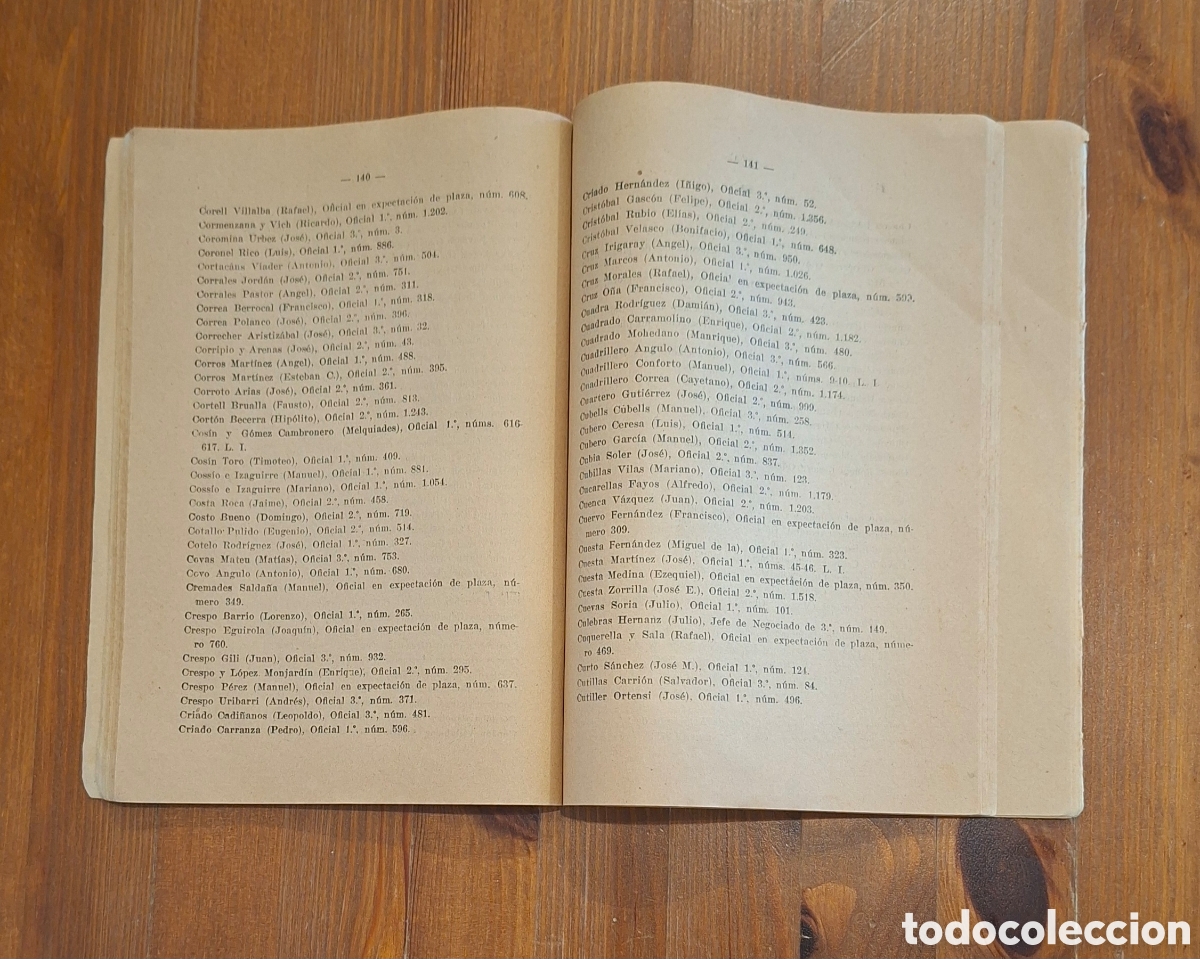 — 140 —
Corell Villalba (Rafael), Oficial en expectación de plaza, núm. 608.
Cormenzana y Vich (Ricardo), Oficial 1.º, núm. 1.202.
Coromina Urbez (José), Oficial 3.º, núm. 3.
Coronel Rico (Luis), Oficial 1.º, núm. 886.
Cortacáns Viader (Antonio), Oficial 3.º, núm. 504.
Corrales Jordán (José), Oficial 2.º, núm. 751.
Corrales Pastor (Angel), Oficial 2.º, núm. 311.
Correa Berrocal (Francisco), Oficial 1.º, núm. 318.
Correa Polanco (José), Oficial 2.º, núm. 396.
Correcher Aristizábal (José), Oficial 3.º, núm. 32.
Corripio y Arenas (José), Oficial 2.º, núm. 43.
Corros Martínez (Angel), Oficial 1.º, núm. 488.
Corros Martínez (Esteban C.), Oficial 2.º, núm. 395.
Corroto Arias (José), Oficial 2.º, núm. 361.
Cortell Brualla (Fausto), Oficial 2.º, núm. 813.
Cortón Becerra (Hipólito), Oficial 2.º, núm. 1.243.
Cosín y Gómez Cambronero (Melquiades), Oficial 1.º, núms. 616-
617. L. I.
Cosín Toro (Timoteo), Oficial 1.º, núm. 409.
Cossío e Izaguirre (Manuel), Oficial 1.º, núm. 881.
Cossío e Izaguirre (Mariano), Oficial 1.º, núm. 1.054.
Costa Roca (Jaime), Oficial 2.º, núm. 458.
Costo Bueno (Domingo), Oficial 2.º, núm. 719.
Cotallo Pulido (Eugenio), Oficial 2.º, núm. 514.
Cotelo Rodríguez (José), Oficial 1.º, núm. 327.
Covas Mateu (Matías), Oficial 3.º, núm. 753.
Covo Angulo (Antonio), Oficial 1.º, núm. 680.
Cremades Saldaña (Manuel), Oficial en expectación de plaza, nú-
mero 349.
Crespo Barrio (Lorenzo), Oficial 1.º, núm. 265.
Crespo Eguírola (Joaquín), Oficial en expectación de plaza, núme-
ro 760.
Crespo Gili (Juan), Oficial 3.º, núm. 932.
Crespo y López Monjardín (Enrique), Oficial 2.º, núm. 295.
Crespo Pérez (Manuel), Oficial en expectación de plaza, núm. 637.
Crespo Uribarri (Andrés), Oficial 3.º, núm. 371.
Criado Cadiñanos (Leopoldo), Oficial 3.º, núm. 481.
Criado Carranza (Pedro), Oficial 1.º, núm. 596.
— 141 —
Criado Hernández (Iñigo), Oficial 3.º, núm. 52.
Cristóbal Gascón (Felipe), Oficial 2.º, núm. 1.356.
Cristóbal Rubio (Elías), Oficial 2.º, núm. 249.
Cristóbal Velasco (Bonifacio), Oficial 1.º, núm. 648.
Cruz Irigaray (Angel), Oficial 3.º, núm. 950.
Cruz Marcos (Antonio), Oficial 1.º, núm. 1.026.
Cruz Morales (Rafael), Oficial en expectación de plaza, núm. 599.
Cruz Oña (Francisco), Oficial 2.º, núm. 943.
Cuadra Rodríguez (Damián), Oficial 3.º, núm. 423.
Cuadrado Carramolino (Enrique), Oficial 2.º, núm. 1.182.
Cuadrado Mohedano (Manrique), Oficial 3.º, núm. 480.
Cuadrillero Angulo (Antonio), Oficial 3.º, núm. 566.
Cuadrillero Conforto (Manuel), Oficial 1.º, núms. 9-10. L. I.
Cuadrillero Correa (Cayetano), Oficial 2.º, núm. 1.174.
Cuartero Gutiérrez (José), Oficial 2.º, núm. 999.
Cubells Cubells (Manuel), Oficial 3.º, núm. 258.
Cubero Ceresa (Luis), Oficial 1.º, núm. 514.
Cubero García (Manuel), Oficial 2.º, núm. 1.352.
Cubía Soler (José), Oficial 2.º, núm. 837.
Cubillas Vilas (Mariano), Oficial 3.º, núm. 123.
Cucarellas Fayos (Alfredo), Oficial 2.º, núm. 1.179.
Cuenca Vázquez (Juan), Oficial 2.º, núm. 1.203.
Cuervo Fernández (Francisco), Oficial en expectación de plaza, nú-
mero 309.
Cuesta Fernández (Miguel de la), Oficial 1.º, núm. 323.
Cuesta Martínez (José), Oficial 1.º, núms. 45-46. L. I.
Cuesta Medina (Ezequiel), Oficial en expectación de plaza, núm. 350.
Cuesta Zorrilla (José E.), Oficial 2.º, núm. 1.518.
Cuevas Soria (Julio), Oficial 1.º, núm. 101.
Culebras Hernanz (Julio), Jefe de Negociado de 3.ª, núm. 149.
Cuquerella y Sala (Rafael), Oficial en expectación de plaza, núme-
ro 469.
Curto Sánchez (José M.), Oficial 1.º, núm. 124.
Cutillas Carrión (Salvador), Oficial 3.º, núm. 84.
Cutiller Ortensi (José), Oficial 1.º, núm. 496.
todocoleccion